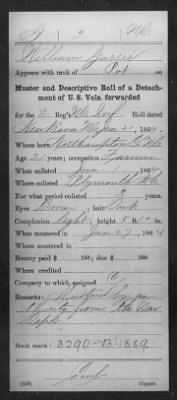 G 2 N.C.
William
Appears with rank of Pvt. on
Muster and Descriptive Roll of a Detach-
ment of U. S. Vols. forwarded
for the 2 Reg't N.C. Inf. Roll dated
New Berne N.C. Jan 21, 1864.
Where born Northampton Co N.C.
Age 22 years; occupation Farmer
When enlisted Jan 1, 1864
Where enlisted Plymouth N.C.
For what period enlisted 3 years.
Eyes Brown; hair Dark
Complexion light; height 5 ft. in.
When mustered in Jan 27, 1864
Where mustered in
Bounty paid $ 100; due $ 100
Where credited
Company to which assigned
Remarks:
thority from the War
Dept.
Book mark: 3290-B-1889
Copyist.